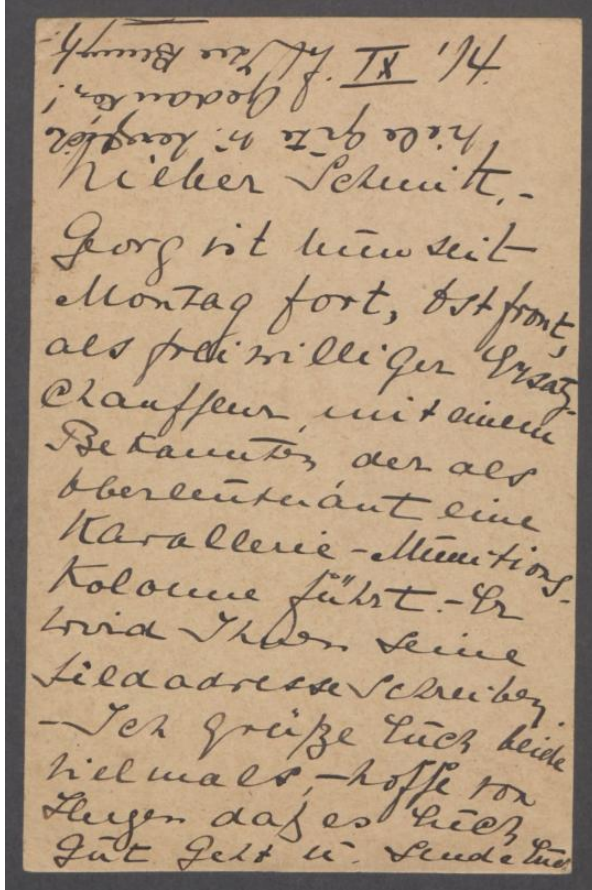 IX '14.
Lieber Schmitt, –
Georg ist nun seit
Montag fort, Ostfront,
als freiwilliger Ersatz-
Chauffeur, mit einem
Bekannten, der als
Oberleutnant eine
Kavallerie-Munitions-
Kolonne führt. – Er
wird Ihnen seine
Feldadresse schreiben
– Ich grüße Euch beide
vielmals, – hoffe von
Herzen daß es Euch
gut geht u. sende Euch
viele gute u. herzliche
Gedanken!